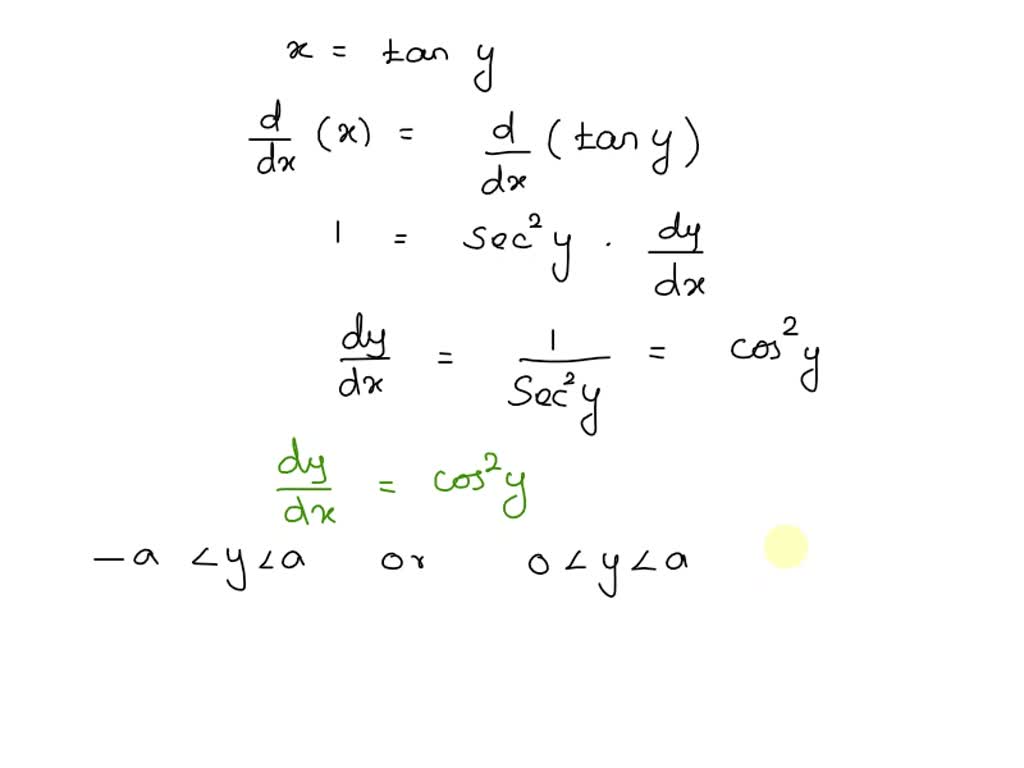 x = tan y
d/dx (x) = d/dx (tan y)
1 = sec² y · dy/dx
dy/dx = 1/Sec²y = cos²y
dy/dx = cos²y
-a < y < a or 0 < y < a